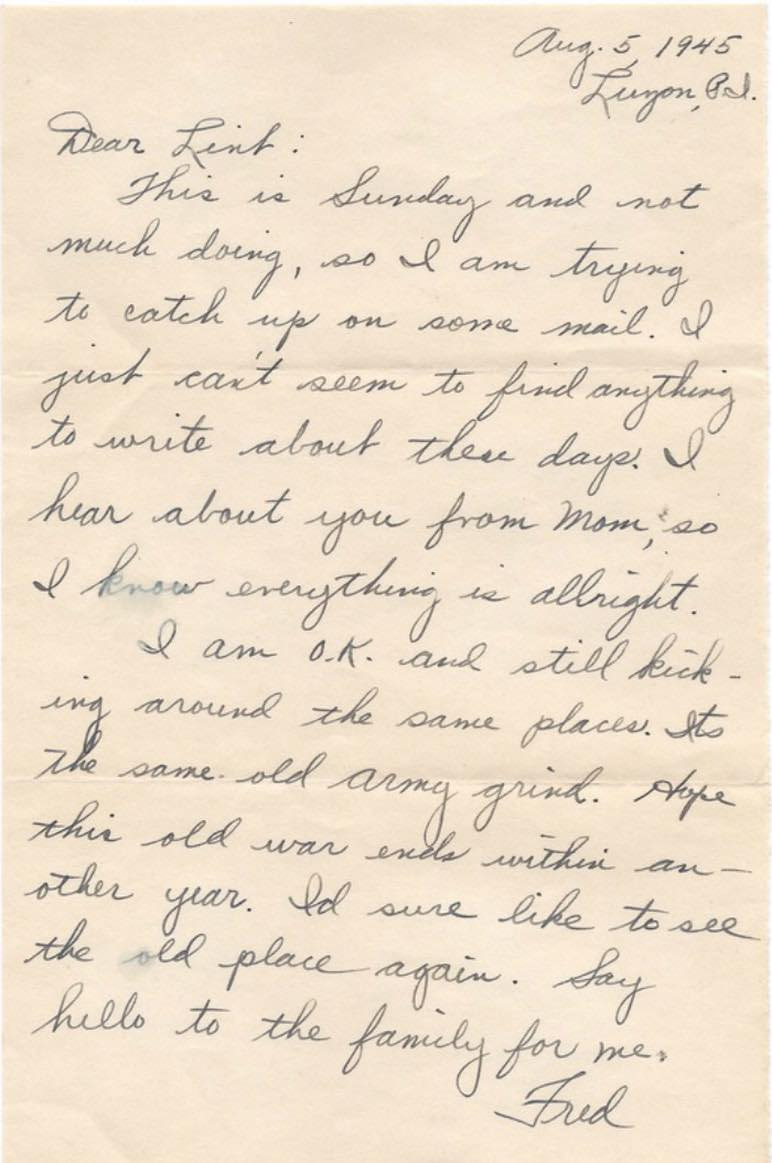 Aug. 5, 1945
Luzon, P.I.
Dear Lint:
This is Sunday and not
much doing, so I am trying
to catch up on some mail. I
just can't seem to find anything
to write about these days. I
hear about you from Mom, so
I know everything is allright.
I am O.K. and still kick-
ing around the same places. Its
the same old army grind. Hope
this old war ends within an-
other year. I'd sure like to see
the old place again. Say
hello to the family for me.
Fred